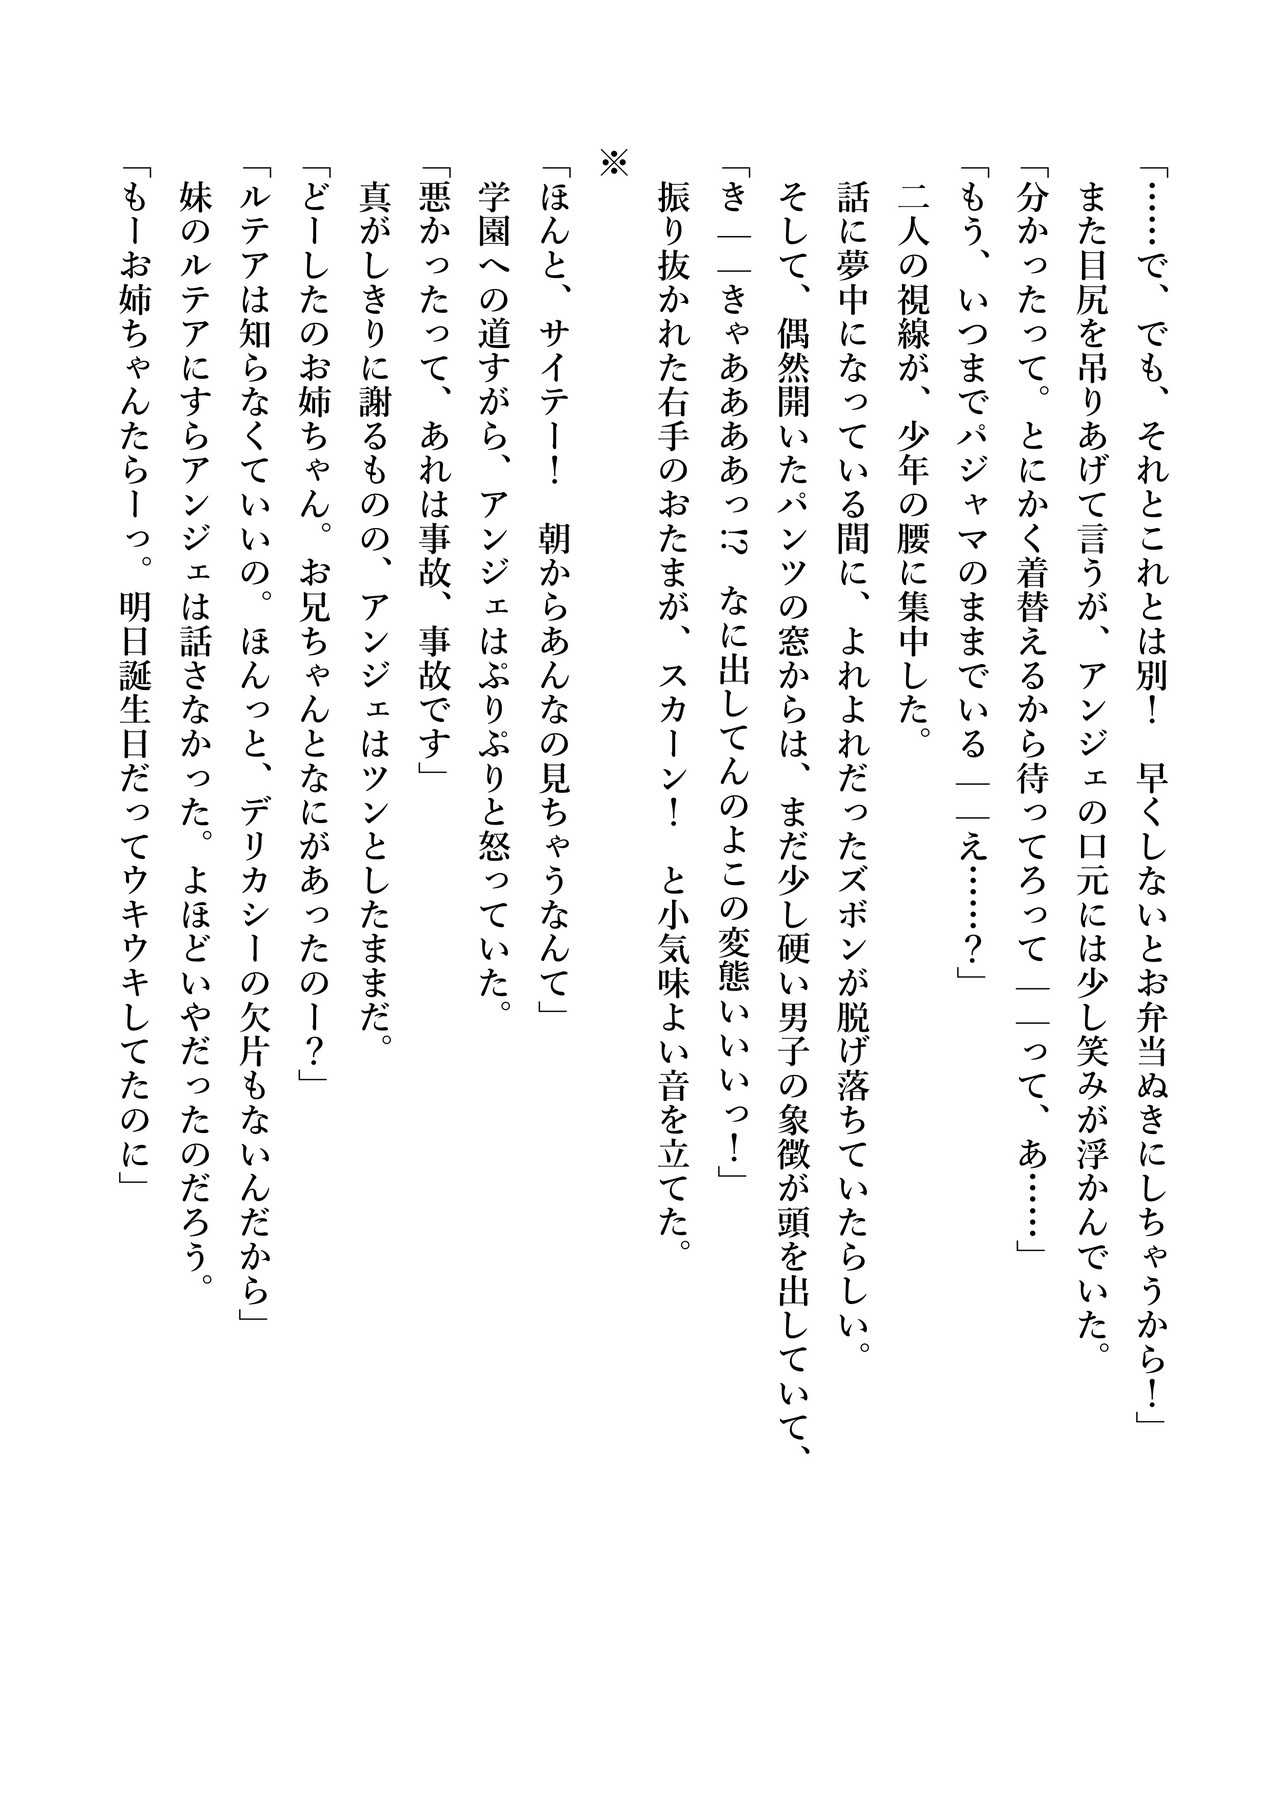 「……で、でも、それとこれとは別！　早くしないとお弁当ぬきにしちゃうから！」
　また目尻を吊りあげて言うが、アンジェの口元には少し笑みが浮かんでいた。
「分かったって。とにかく着替えるから待ってろって――って、あ……」
「もう、いつまでパジャマのままでいる――え……？」
　二人の視線が、少年の腰に集中した。
　話に夢中になっている間に、よれよれだったズボンが脱げ落ちていたらしい。
　そして、偶然開いたパンツの窓からは、まだ少し硬い男子の象徴が頭を出していて、
「き――きゃああああっ!?　なに出してんのよこの変態いいいっ！」
　振り抜かれた右手のおたまが、スカーン！　と小気味よい音を立てた。
※
「ほんと、サイテー！　朝からあんなの見ちゃうなんて」
　学園への道すがら、アンジェはぷりぷりと怒っていた。
「悪かったって、あれは事故、事故です」
　真がしきりに謝るものの、アンジェはツンとしたままだ。
「どーしたのお姉ちゃん。お兄ちゃんとなにがあったのー？」
「ルテアは知らなくていいの。ほんっと、デリカシーの欠片もないんだから」
　妹のルテアにすらアンジェは話さなかった。よほどいやだったのだろう。
「もーお姉ちゃんたらーっ。明日誕生日だってウキウキしてたのに」